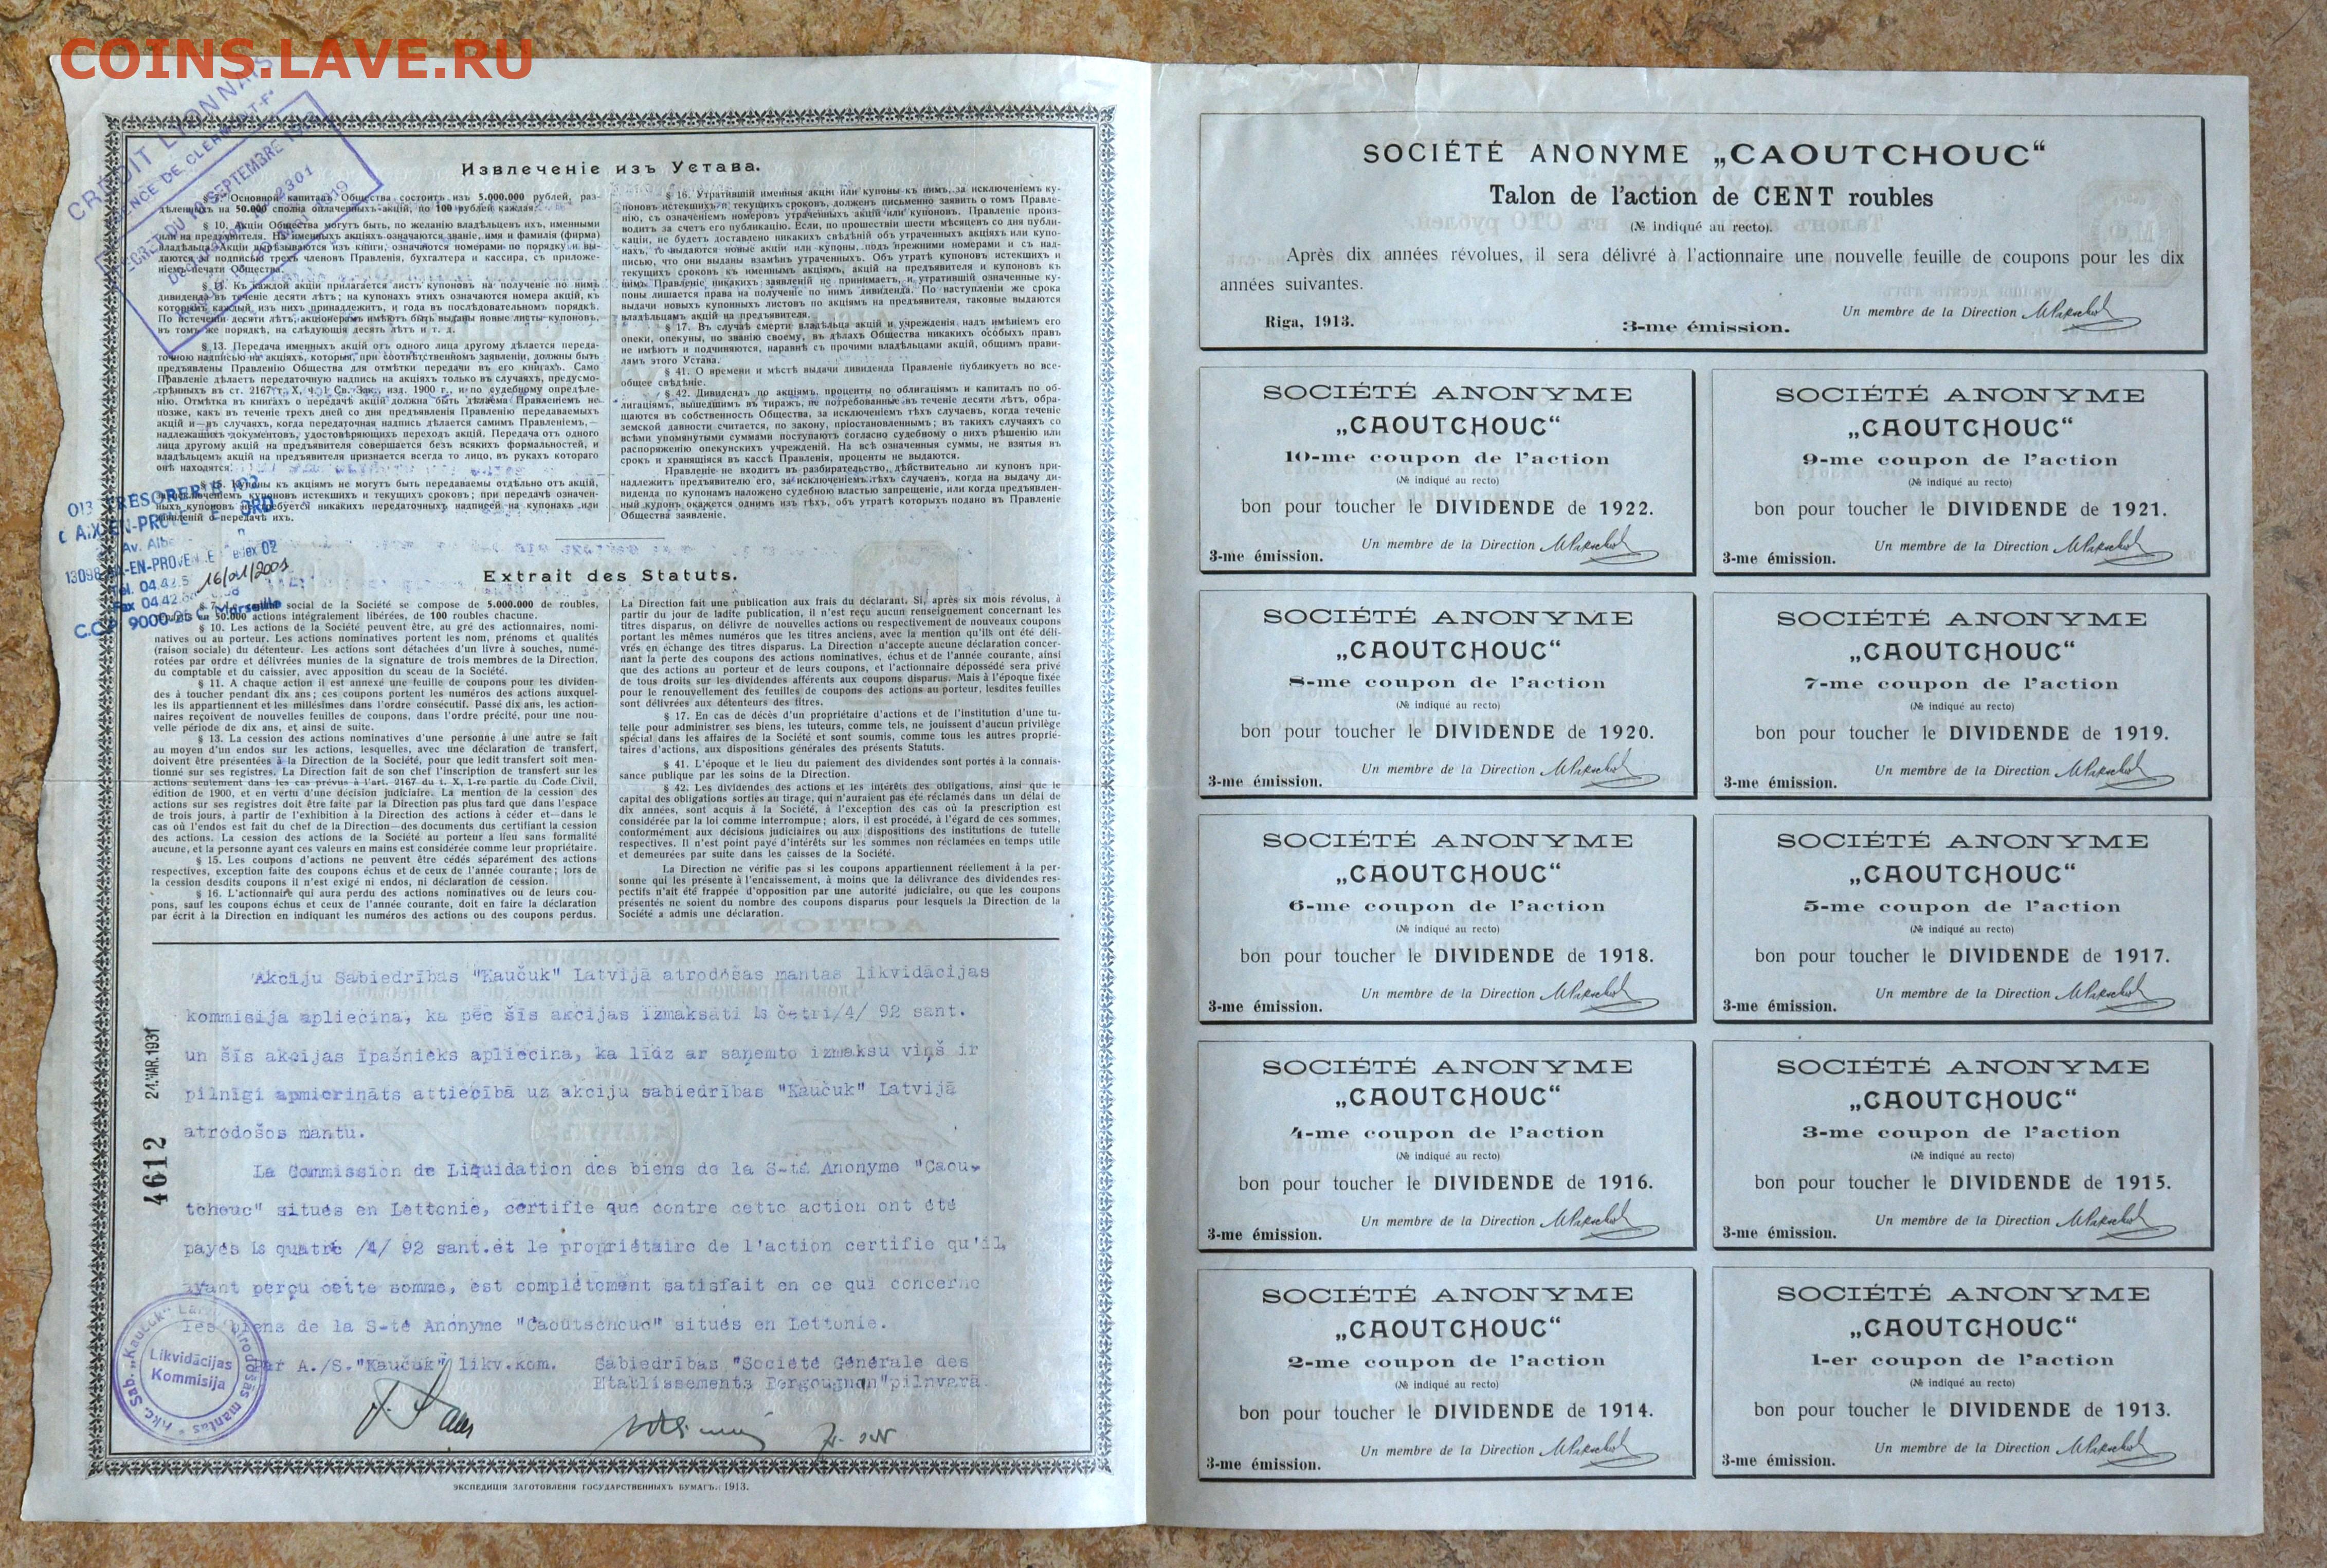 COINS.LAVE.RU
CREDIT LYONNAIS
Извлеченіе изъ Устава.
§ 7. Основной капиталъ Общества состоитъ изъ 5.000.000 рублей, раз-
дѣленныхъ на 50.000 сполна оплаченныхъ акцій, по 100 рублей каждая.
§ 10. Акціи Общества могутъ быть, по желанію владѣльцевъ ихъ, именными
или на предъявителя. На именныхъ акціяхъ означаются званіе, имя и фамилія (фирма)
владѣльца. Акціи вырѣзываются изъ книги, означаются номерами по порядку и вы-
даются за подписью трехъ членовъ Правленія, бухгалтера и кассира, съ приложе-
ніемъ печати Общества.
§ 11. Къ каждой акціи прилагается листъ купоновъ на полученіе по нимъ
дивиденда въ теченіе десяти лѣтъ; на купонахъ этихъ означаются номера акцій, къ
которымъ каждый изъ нихъ принадлежитъ, и года въ послѣдовательномъ порядкѣ.
По истеченіи десяти лѣтъ, акціонерамъ имѣютъ быть выданы новые листы купоновъ,
въ томъ же порядкѣ, на слѣдующія десять лѣтъ и т. д.
§ 13. Передача именныхъ акцій отъ одного лица другому дѣлается переда-
точною надписью на акціяхъ, которыя, при соотвѣтственномъ заявленіи, должны быть
предъявлены Правленію Общества для отмѣтки передачи въ его книгахъ. Само
Правленіе дѣлаетъ передаточную надпись на акціяхъ только въ случаяхъ, предусмо-
трѣнныхъ въ ст. 2167 т. X, ч. 1 Св. Зак., изд. 1900 г., и по судебному опредѣле-
нію. Отмѣтка въ книгахъ о передачѣ акцій должна быть дѣлаема Правленіемъ не
позже, какъ въ теченіе трехъ дней со дня предъявленія Правленію передаваемыхъ
акцій и—въ случаяхъ, когда передаточная надпись дѣлается самимъ Правленіемъ,—
надлежащихъ документовъ, удостовѣряющихъ переходъ акцій. Передача отъ одного
лица другому акцій на предъявителя совершается безъ всякихъ формальностей, и
владѣльцемъ акцій на предъявителя признается всегда то лицо, въ рукахъ котораго
онѣ находятся.
§ 15. Купоны къ акціямъ не могутъ быть передаваемы отдѣльно отъ акцій,
за исключеніемъ купоновъ истекшихъ и текущихъ сроковъ; при передачѣ означен-
ныхъ купоновъ не требуется никакихъ передаточныхъ надписей на купонахъ или
заявленій о передачѣ ихъ.
§ 16. Утратившій именныя акціи или купоны къ нимъ, за исключеніемъ ку-
поновъ истекшихъ и текущихъ сроковъ, долженъ письменно заявить о томъ Правле-
нію, съ означеніемъ номеровъ утраченныхъ акцій или купоновъ. Правленіе произ-
водитъ за счетъ его публикацію. Если, по прошествіи шести мѣсяцевъ со дня публи-
каціи, не будетъ доставлено никакихъ свѣдѣній объ утраченныхъ акціяхъ или купо-
нахъ, то выдаются новые акціи или купоны, подъ прежними номерами и съ над-
писью, что они выданы взамѣнъ утраченныхъ. Объ утратѣ купоновъ истекшихъ и
текущихъ сроковъ къ именнымъ акціямъ, акцій на предъявителя и купоновъ къ
нимъ Правленіе никакихъ заявленій не принимаетъ, и утратившій означенные ку-
поны лишается права на полученіе по нимъ дивиденда. По наступленіи же срока
выдачи новыхъ купонныхъ листовъ по акціямъ на предъявителя, таковые выдаются
владѣльцамъ акцій на предъявителя.
§ 17. Въ случаѣ смерти владѣльца акцій и учрежденія надъ имѣніемъ его
опеки, опекуны, по званію своему, въ дѣлахъ Общества никакихъ особыхъ правъ
не имѣютъ и подчиняются, наравнѣ съ прочими владѣльцами акцій, общимъ прави-
ламъ этого Устава.
§ 41. О времени и мѣстѣ выдачи дивиденда Правленіе публикуетъ во все-
общее свѣдѣніе.
§ 42. Дивидендъ по акціямъ, проценты по облигаціямъ и капиталъ по об-
лигаціямъ, вышедшимъ въ тиражъ, не потребованные въ теченіе десяти лѣтъ, обра-
щаются въ собственность Общества, за исключеніемъ тѣхъ случаевъ, когда теченіе
земской давности считается, по закону, пріостановленнымъ; въ такихъ случаяхъ со
всѣми упомянутыми суммами поступаютъ согласно судебному о нихъ рѣшенію или
распоряженію опекунскихъ учрежденій. На всѣ означенныя суммы, не взятыя въ
срокъ и хранящіяся въ кассѣ Правленія, проценты не выдаются.
Правленіе не входитъ въ разбирательство, дѣйствительно ли купонъ при-
надлежитъ предъявителю его, за исключеніемъ тѣхъ случаевъ, когда на выдачу ди-
виденда по купонамъ наложено судебною властью запрещеніе, или когда предъявлен-
ный купонъ окажется однимъ изъ тѣхъ, объ утратѣ которыхъ подано въ Правленіе
Общества заявленіе.
16/01/2001
Extrait des Statuts.
social de la Société se compose de 5.000.000 de roubles,
50.000 actions intégralement libérées, de 100 roubles chacune.
§ 10. Les actions de la Société peuvent être, au gré des actionnaires, nomi-
natives ou au porteur. Les actions nominatives portent les nom, prénoms et qualités
(raison sociale) du détenteur. Les actions sont détachées d'un livre à souches, numé-
rotées par ordre et délivrées munies de la signature de trois membres de la Direction,
du comptable et du caissier, avec apposition du sceau de la Société.
§ 11. A chaque action il est annexé une feuille de coupons pour les dividen-
des à toucher pendant dix ans; ces coupons portent les numéros des actions auxquel-
les ils appartiennent et les millésimes dans l'ordre consécutif. Passé dix ans, les action-
naires reçoivent de nouvelles feuilles de coupons, dans l'ordre précité, pour une nou-
velle période de dix ans, et ainsi de suite.
§ 13. La cession des actions nominatives d'une personne à une autre se fait
au moyen d'un endos sur les actions, lesquelles, avec une déclaration de transfert,
doivent être présentées à la Direction de la Société, pour que ledit transfert soit men-
tionné sur ses registres. La Direction fait de son chef l'inscription de transfert sur les
actions seulement dans les cas prévus à l'art. 2167 du t. X, 1-re partie du Code Civil,
édition de 1900, et en vertu d'une décision judiciaire. La mention de la cession des
actions sur ses registres doit être faite par la Direction pas plus tard que dans l'espace
de trois jours, à partir de l'exhibition à la Direction des actions à céder et—dans le
cas où l'endos est fait du chef de la Direction—des documents dus certifiant la cession
des actions. La cession des actions de la Société au porteur a lieu sans formalité
aucune, et la personne ayant ces valeurs en mains est considérée comme leur propriétaire.
§ 15. Les coupons d'actions ne peuvent être cédés séparément des actions
respectives, exception faite des coupons échus et de ceux de l'année courante; lors de
la cession desdits coupons il n'est exigé ni endos, ni déclaration de cession.
§ 16. L'actionnaire qui aura perdu des actions nominatives ou de leurs cou-
pons, sauf les coupons échus et ceux de l'année courante, doit en faire la déclaration
par écrit à la Direction en indiquant les numéros des actions ou des coupons perdus.
La Direction fait une publication aux frais du déclarant. Si, après six mois révolus, à
partir du jour de ladite publication, il n'est reçu aucun renseignement concernant les
titres disparus, on délivre de nouvelles actions ou respectivement de nouveaux coupons
portant les mêmes numéros que les titres anciens, avec la mention qu'ils ont été déli-
vrés en échange des titres disparus. La Direction n'accepte aucune déclaration concer-
nant la perte des coupons des actions nominatives, échus et de l'année courante, ainsi
que des actions au porteur et de leurs coupons, et l'actionnaire dépossédé sera privé
de tous droits sur les dividendes afférents aux coupons disparus. Mais à l'époque fixée
pour le renouvellement des feuilles de coupons des actions au porteur, lesdites feuilles
sont délivrées aux détenteurs des titres.
§ 17. En cas de décès d'un propriétaire d'actions et de l'institution d'une tu-
telle pour administrer ses biens, les tuteurs, comme tels, ne jouissent d'aucun privilège
spécial dans les affaires de la Société et sont soumis, comme tous les autres proprié-
taires d'actions, aux dispositions générales des présents Statuts.
§ 41. L'époque et le lieu du paiement des dividendes sont portés à la connais-
sance publique par les soins de la Direction.
§ 42. Les dividendes des actions et les intérêts des obligations, ainsi que le
capital des obligations sorties au tirage, qui n'auraient pas été réclamés dans un délai de
dix années, sont acquis à la Société, à l'exception des cas où la prescription est
considérée par la loi comme interrompue; alors, il est procédé, à l'égard de ces sommes,
conformément aux décisions judiciaires ou aux dispositions des institutions de tutelle
respectives. Il n'est point payé d'intérêts sur les sommes non réclamées en temps utile
et demeurées par suite dans les caisses de la Société.
La Direction ne vérifie pas si les coupons appartiennent réellement à la per-
sonne qui les présente à l'encaissement, à moins que la délivrance des dividendes res-
pectifs n'ait été frappée d'opposition par une autorité judiciaire, ou que les coupons
présentés ne soient du nombre des coupons disparus pour lesquels la Direction de la
Société a admis une déclaration.
Akciju Sabiedrības "Kaučuk" Latvijā atrodošās mantas likvidācijas
kommisija apliecina, ka pēc šīs akcijas izmaksāti Ls četri/4/ 92 sant.
un šīs akcijas īpašnieks apliecina, ka līdz ar saņemto izmaksu viņš ir
pilnīgi apmierināts attiecībā uz akciju sabiedrības "Kaučuk" Latvijā
atrodošos mantu.
La Commission de Liquidation des biens de la S-té Anonyme "Caou-
tchouc" situés en Lettonie, certifie que contre cette action ont été
payés Ls quatre /4/ 92 sant.et le propriétaire de l'action certifie qu'il,
ayant perçu cette somme, est complètement satisfait en ce qui concerne
les biens de la S-té Anonyme "Caoutschouc" situés en Lettonie.
Par A./S."Kaučuk" likv.kom. Sabiedrības "Société Générale des
Etablissements Bergougnan"pilnvarā.
4612 24.MAR.1931
Likvidācijas
Kommisija
ЭКСПЕДИЦІЯ ЗАГОТОВЛЕНІЯ ГОСУДАРСТВЕННЫХЪ БУМАГЪ. 1913.
SOCIÉTÉ ANONYME „CAOUTCHOUC“
Talon de l'action de CENT roubles
(№ indiqué au recto).
Après dix années révolues, il sera délivré à l'actionnaire une nouvelle feuille de coupons pour les dix
années suivantes.
Riga, 1913. 3-me émission. Un membre de la Direction
SOCIÉTÉ ANONYME
„CAOUTCHOUC“
10-me coupon de l'action
(№ indiqué au recto)
bon pour toucher le DIVIDENDE de 1922.
3-me émission. Un membre de la Direction
SOCIÉTÉ ANONYME
„CAOUTCHOUC“
9-me coupon de l'action
(№ indiqué au recto)
bon pour toucher le DIVIDENDE de 1921.
3-me émission. Un membre de la Direction
SOCIÉTÉ ANONYME
„CAOUTCHOUC“
8-me coupon de l'action
(№ indiqué au recto)
bon pour toucher le DIVIDENDE de 1920.
3-me émission. Un membre de la Direction
SOCIÉTÉ ANONYME
„CAOUTCHOUC“
7-me coupon de l'action
(№ indiqué au recto)
bon pour toucher le DIVIDENDE de 1919.
3-me émission. Un membre de la Direction
SOCIÉTÉ ANONYME
„CAOUTCHOUC“
6-me coupon de l'action
(№ indiqué au recto)
bon pour toucher le DIVIDENDE de 1918.
3-me émission. Un membre de la Direction
SOCIÉTÉ ANONYME
„CAOUTCHOUC“
5-me coupon de l'action
(№ indiqué au recto)
bon pour toucher le DIVIDENDE de 1917.
3-me émission. Un membre de la Direction
SOCIÉTÉ ANONYME
„CAOUTCHOUC“
4-me coupon de l'action
(№ indiqué au recto)
bon pour toucher le DIVIDENDE de 1916.
3-me émission. Un membre de la Direction
SOCIÉTÉ ANONYME
„CAOUTCHOUC“
3-me coupon de l'action
(№ indiqué au recto)
bon pour toucher le DIVIDENDE de 1915.
3-me émission. Un membre de la Direction
SOCIÉTÉ ANONYME
„CAOUTCHOUC“
2-me coupon de l'action
(№ indiqué au recto)
bon pour toucher le DIVIDENDE de 1914.
3-me émission. Un membre de la Direction
SOCIÉTÉ ANONYME
„CAOUTCHOUC“
1-er coupon de l'action
(№ indiqué au recto)
bon pour toucher le DIVIDENDE de 1913.
3-me émission. Un membre de la Direction